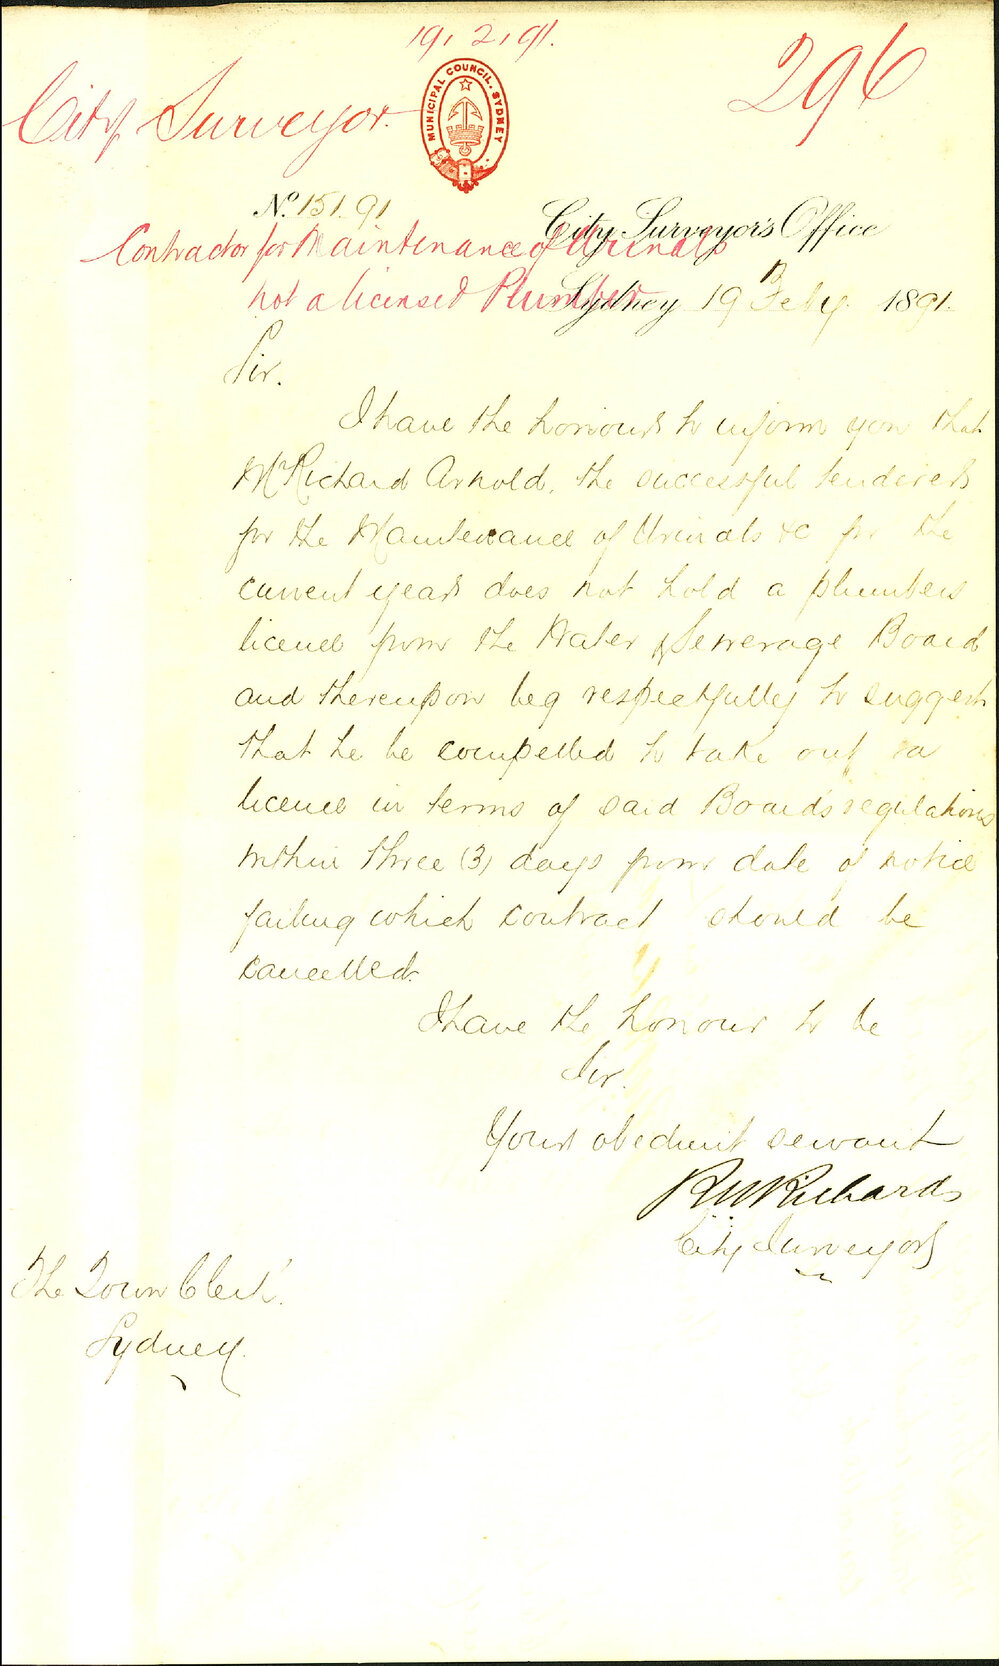 19.2.91.
296
City Surveyor.
MUNICIPAL COUNCIL. SYDNEY
No. 151.91
City Surveyor's Office
Contractor for Maintenance of Urinals
not a licensed Plumber
Sydney 19 Feby. 1891.
Sir.
I have the honour to inform you that
Mr Richard Arnold, the successful tenderer
for the Maintenance of Urinals &c for the
current year does not hold a plumbers
licence from the Water & Sewerage Board
and thereupon beg respectfully to suggest
that he be compelled to take out a
licence in terms of said Board's regulations
within three (3) days from date of notice
failing which contract should be
cancelled.
I have the honour to be
Sir.
Your obedient servant
R W Richards
City Surveyor
The Town Clerk.
Sydney.